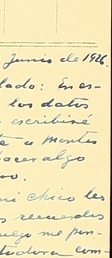 Junio de 1926.
lado: En es-
los datos
escribiré
te a Montes
hacer algo
mi chico les
s recuerdos
luego me pon-
tadora com-